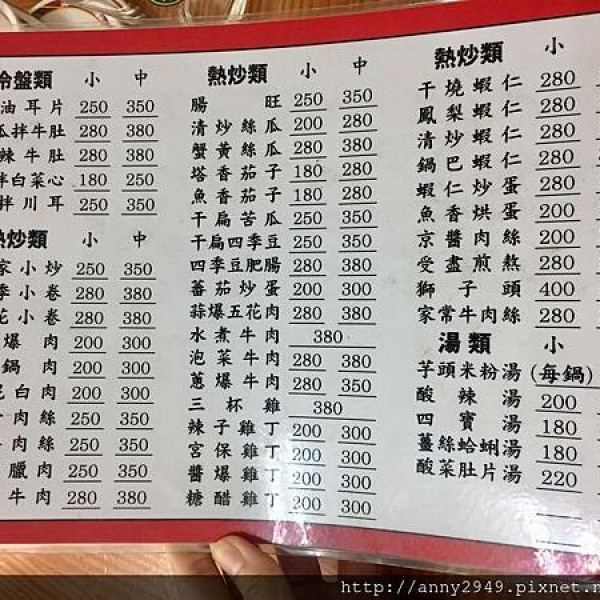 冷盤類 小 中
油耳片 250 350
瓜拌牛肚 280 380
辣牛肚 280 380
拌白菜心 180 250
拌川耳 250 350
熱炒類 小 中
家小炒 250 350
季小卷 280 380
花小卷 280 380
爆肉 200 300
鍋肉 200 300
泥白肉 200 300
肉 250 350
肉絲 250 350
臘肉 250 350
牛肉 280 380
熱炒類 小 中
腸旺 250 350
清炒絲瓜 200 280
蟹黃絲瓜 280 380
塔香茄子 180 280
魚香茄子 180 280
干扁苦瓜 250 350
干扁四季豆 250 350
四季豆肥腸 280 380
蕃茄炒蛋 200 300
蒜爆五花肉 280 380
水煮牛肉 380
泡菜牛肉 280 380
蔥爆牛肉 280 350
三杯雞 380
辣子雞丁 200 300
宮保雞丁 200 300
醬爆雞丁 200 300
糖醋雞丁 200 300
熱炒類 小
干燒蝦仁 280
鳳梨蝦仁 280
清炒蝦仁 280
鍋巴蝦仁 280
蝦仁炒蛋 280
魚香烘蛋 200
京醬肉絲 200
受盡煎熬 280
獅子頭 400
家常牛肉絲 280
湯類 小
芋頭米粉湯 (每鍋)
酸辣湯 200
四寶湯 180
薑絲蛤蜊湯 180
酸菜肚片湯 220
http://anny2949.pixnet.n